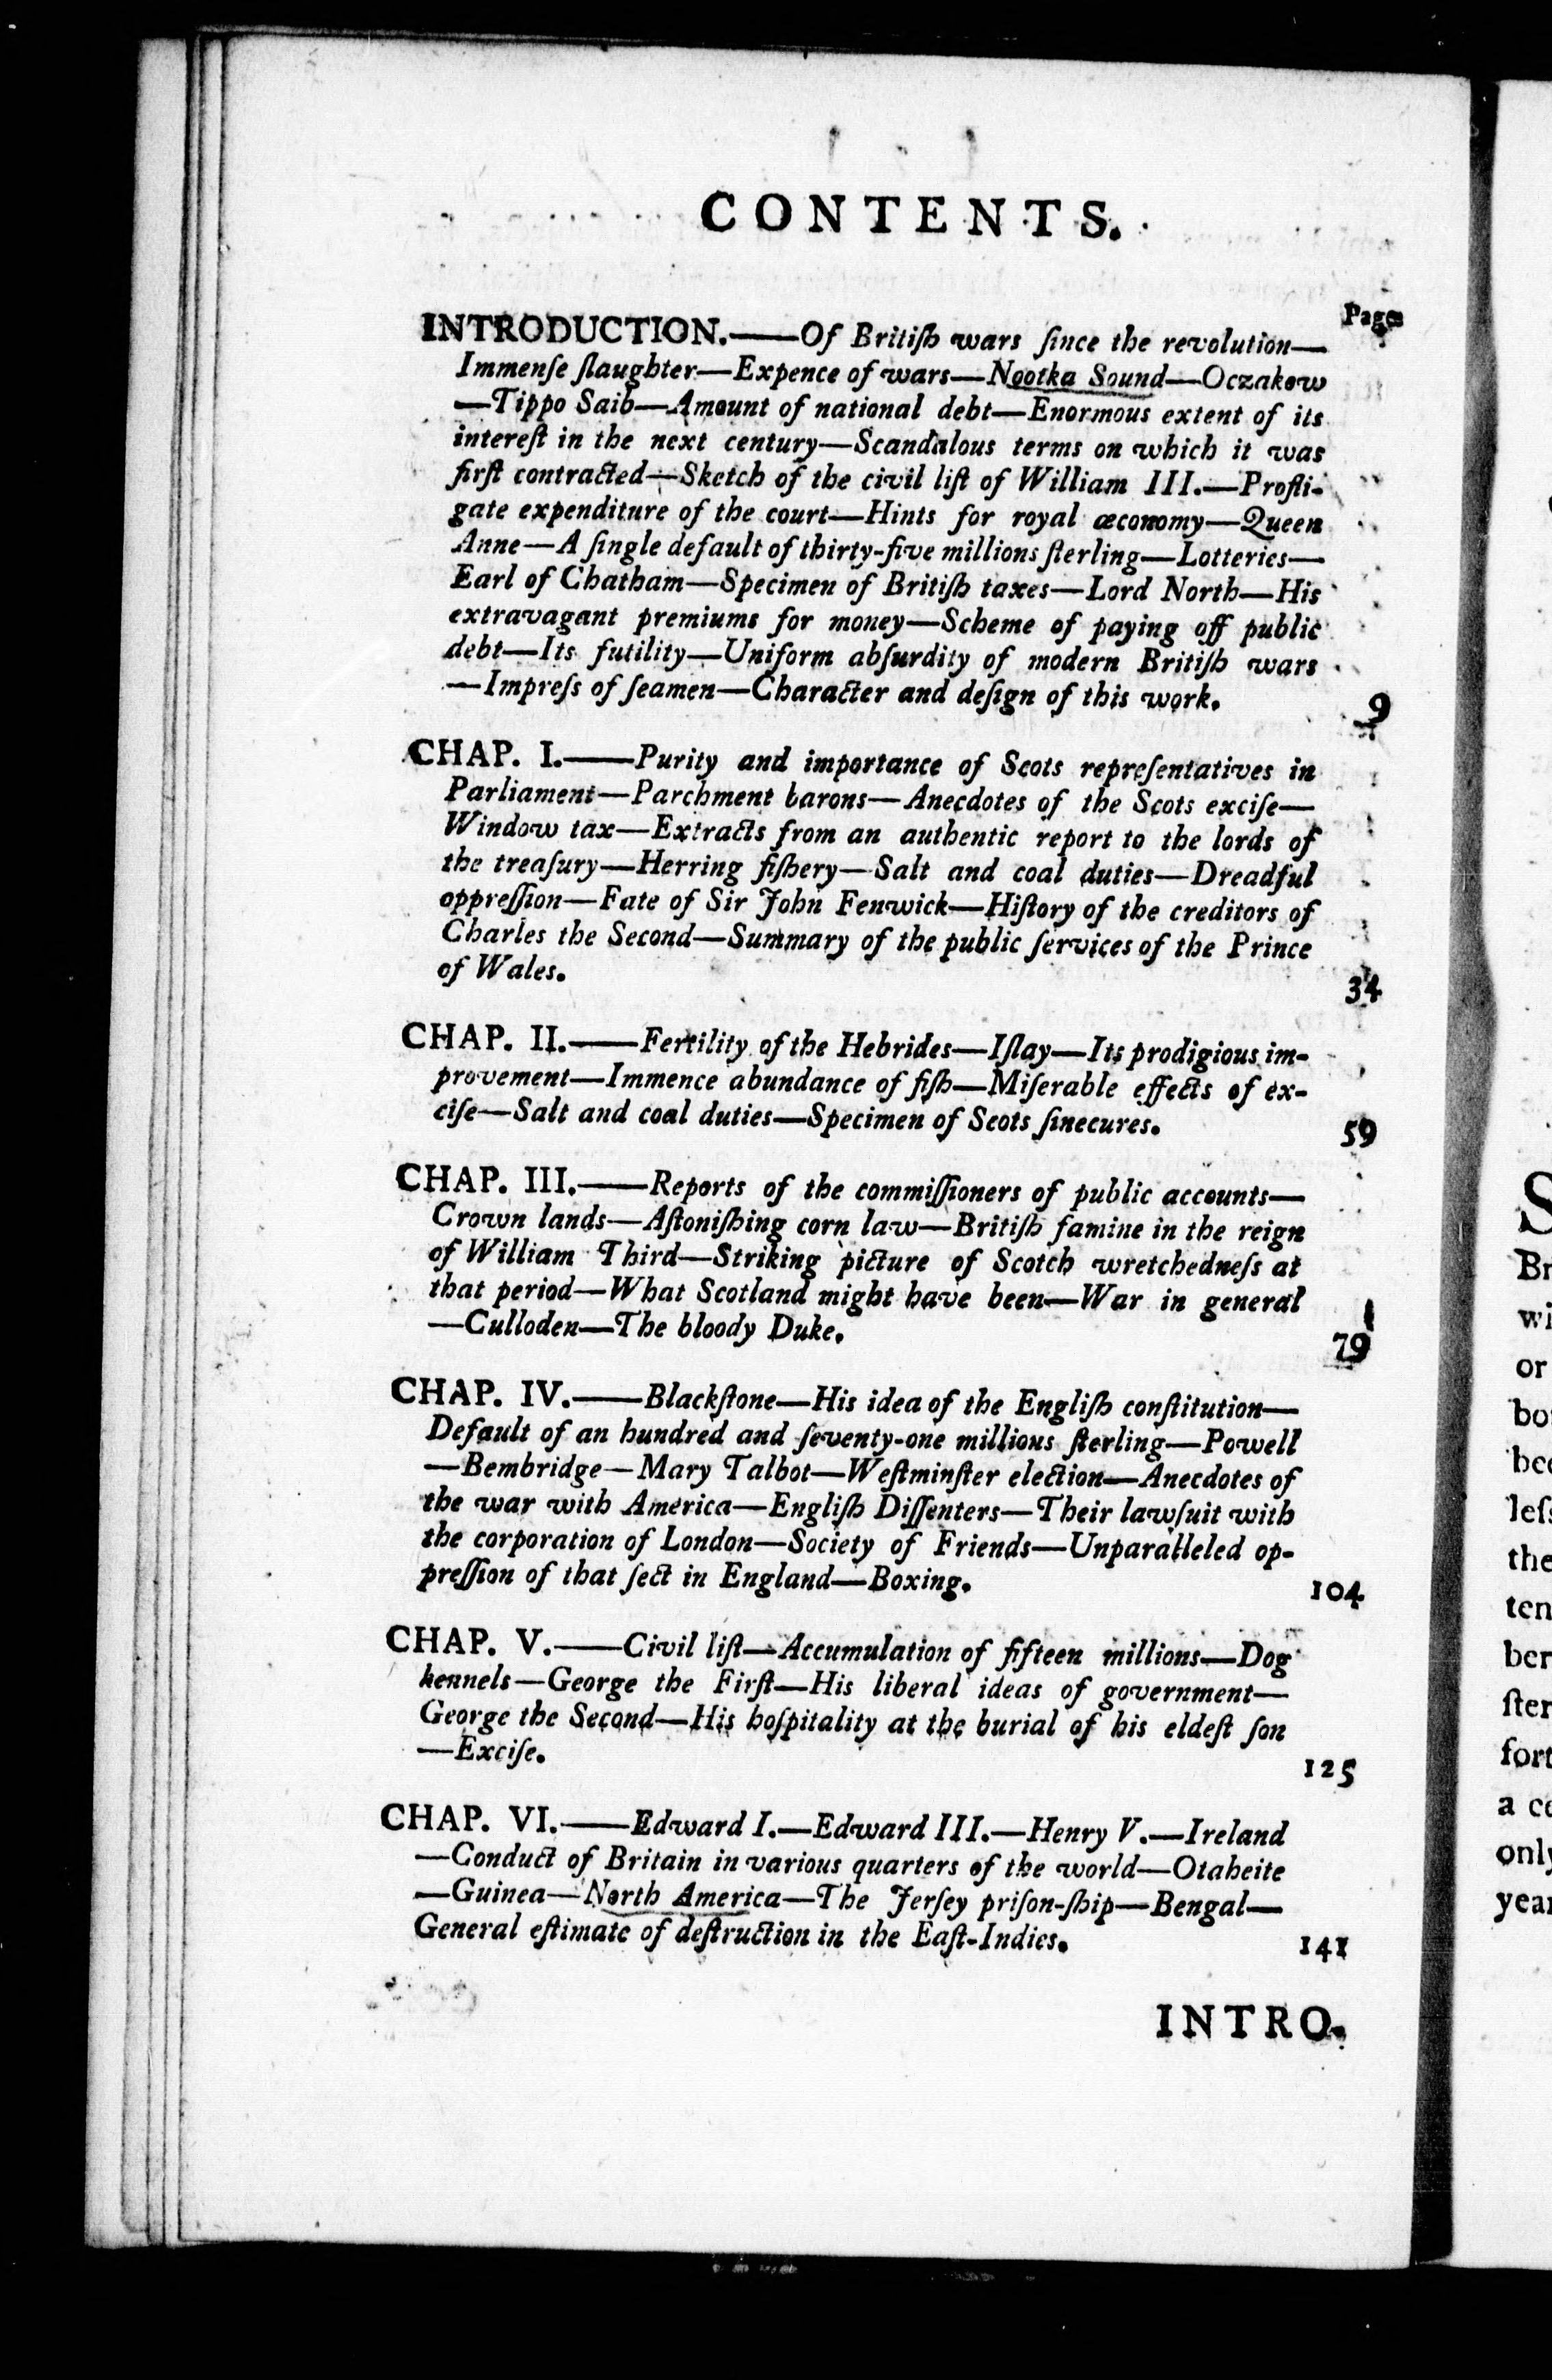 CONTENTS.
Pages
INTRODUCTION.——Of Britiſh wars ſince the revolution—
Immenſe ſlaughter—Expence of wars—Nootka Sound—Oczakow
—Tippo Saib—Amount of national debt—Enormous extent of its
intereſt in the next century—Scandalous terms on which it was
firſt contracted—Sketch of the civil liſt of William III.—Profli-
gate expenditure of the court—Hints for royal œconomy—Queen
Anne—A ſingle default of thirty-five millions ſterling—Lotteries—
Earl of Chatham—Specimen of Britiſh taxes—Lord North—His
extravagant premiums for money—Scheme of paying off public
debt—Its futility—Uniform abſurdity of modern Britiſh wars
—Impreſs of ſeamen—Character and deſign of this work. 9
CHAP. I.——Purity and importance of Scots repreſentatives in
Parliament—Parchment barons—Anecdotes of the Scots exciſe—
Window tax—Extracts from an authentic report to the lords of
the treaſury—Herring fiſhery—Salt and coal duties—Dreadful
oppreſſion—Fate of Sir John Fenwick—Hiſtory of the creditors of
Charles the Second—Summary of the public ſervices of the Prince
of Wales. 34
CHAP. II.——Fertility of the Hebrides—Iſlay—Its prodigious im-
provement—Immence abundance of fiſh—Miſerable effects of ex-
ciſe—Salt and coal duties—Specimen of Scots ſinecures. 59
CHAP. III.——Reports of the commiſſioners of public accounts—
Crown lands—Aſtoniſhing corn law—Britiſh famine in the reign
of William Third—Striking picture of Scotch wretchedneſs at
that period—What Scotland might have been—War in general
—Culloden—The bloody Duke. 79
CHAP. IV.——Blackſtone—His idea of the Engliſh conſtitution—
Default of an hundred and ſeventy-one millions ſterling—Powell
—Bembridge—Mary Talbot—Weſtminſter election—Anecdotes of
the war with America—Engliſh Diſſenters—Their lawſuit with
the corporation of London—Society of Friends—Unparalleled op-
preſſion of that ſect in England—Boxing. 104
CHAP. V.——Civil liſt—Accumulation of fifteen millions—Dog
kennels—George the Firſt—His liberal ideas of government—
George the Second—His hoſpitality at the burial of his eldeſt ſon
—Exciſe. 125
CHAP. VI.——Edward I.—Edward III.—Henry V.—Ireland
—Conduct of Britain in various quarters of the world—Otaheite
—Guinea—North America—The Jerſey priſon-ſhip—Bengal—
General eſtimate of deſtruction in the Eaſt-Indies. 141
INTRO-
S
Br
wi
or
bo
bec
leſs
the
ten
ber
ſter
fort
a ce
only
year